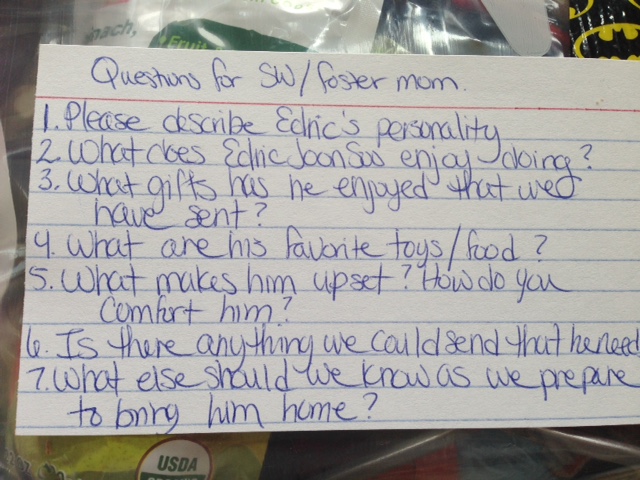 nach,
Fruit
Questions for SW/foster mom.
1. Please describe Edric's personality
2. What does Edric JoonSoo enjoy doing?
3. What gifts has he enjoyed that we
have sent?
4. What are his favorite toys/food?
5. What makes him upset? How do you
comfort him?
6. Is there anything we could send that he need
7. What else should we know as we prepare
to bring him home?
USDA